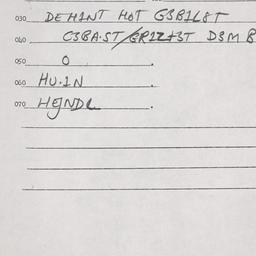 030 DE HINT HOT G3B1L8T
040 C3BA.ST/GR1Z+3T D3M B
050 O .
060 HU.1N .
070 HEJNDL .